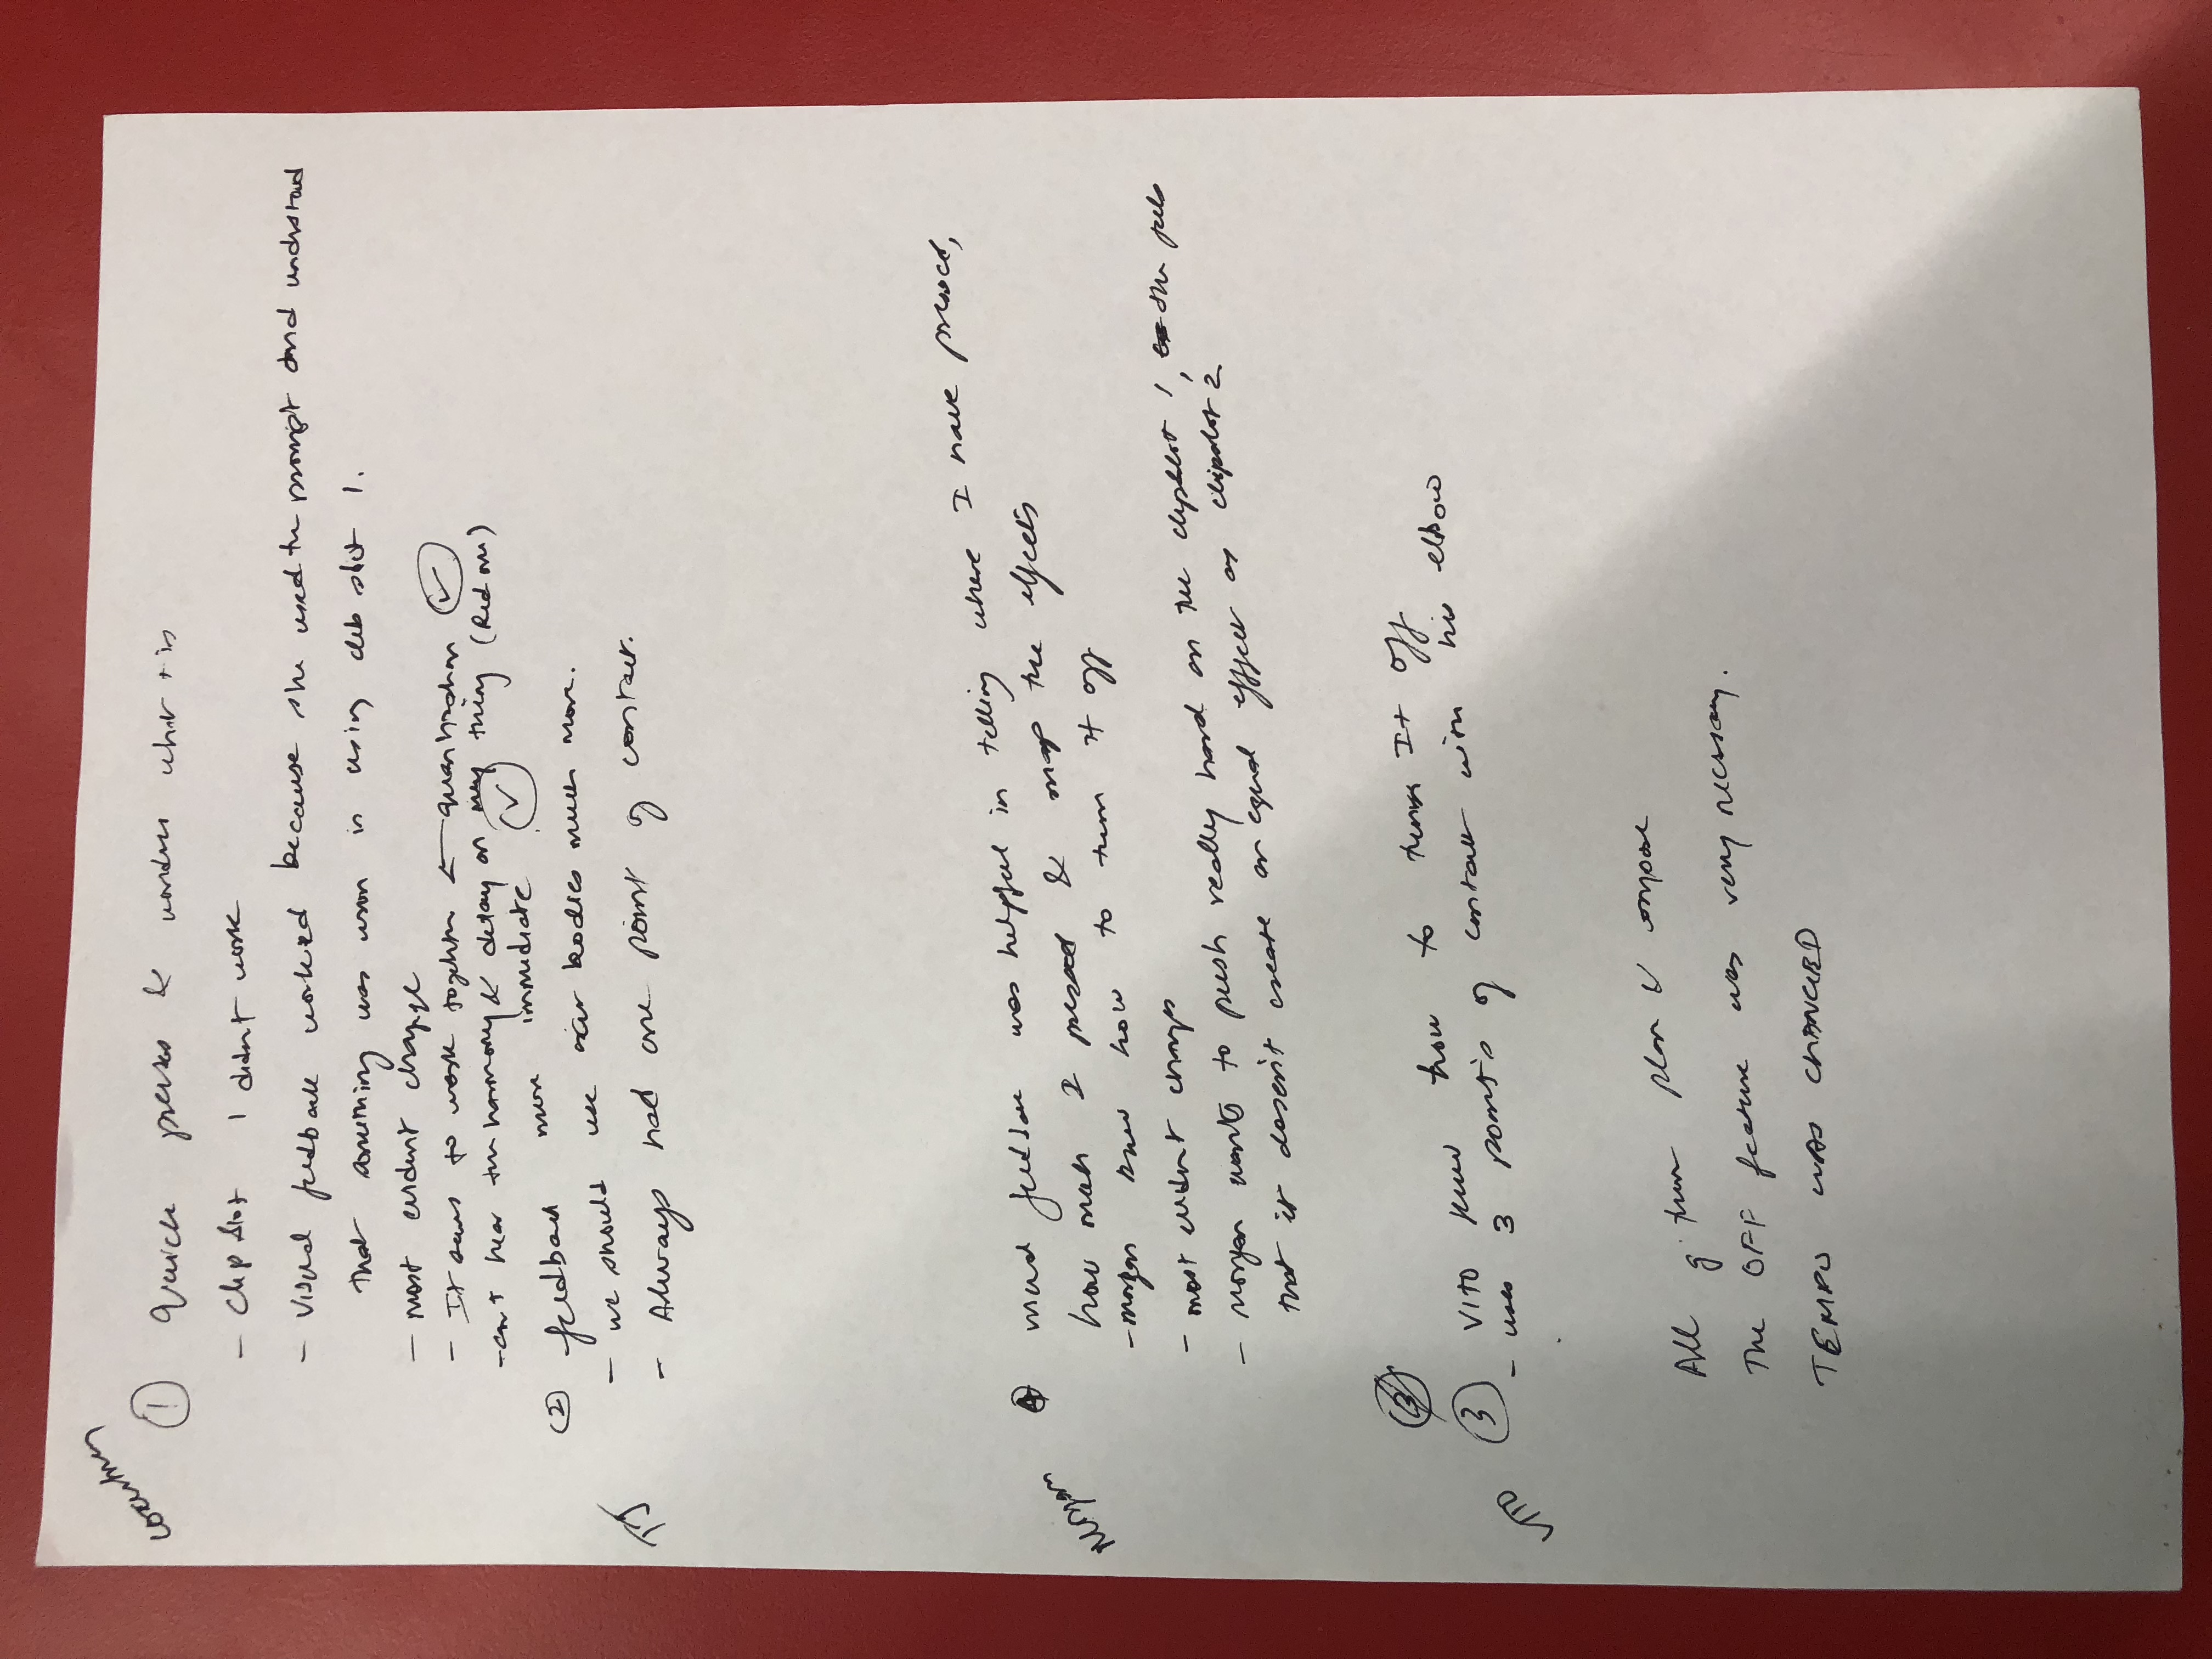 Courtney
① Quick presses & wonders what it is
- Clip Slot 1 didn't work
- Visual feedback worked because she used the prompt and understood
that something was wron in using clip slot 1.
- most evident change
- It seems to work together ← quantization ✓
- can't hear the harmony & delay on thing (Red one)
TJ
② feedback more immediate ✓
- we should use our bodies much more.
- Always had one point of contact.
Morgan
visual feedback was helpful in telling where I have pressed,
how much I pressed & map the effects
- morgan knew how to turn it off
- most evident changes
- Morgan wants to push really hard on the clipslot 1, she feels
that it doesn't create an equal effect as clipslot 2
VITO
③ VITO knew how to turn It off
- uses 3 point's of contact with his elbow
All of them plan & compose
The OFF feature was very necessary.
TEMPO WAS CHANGED